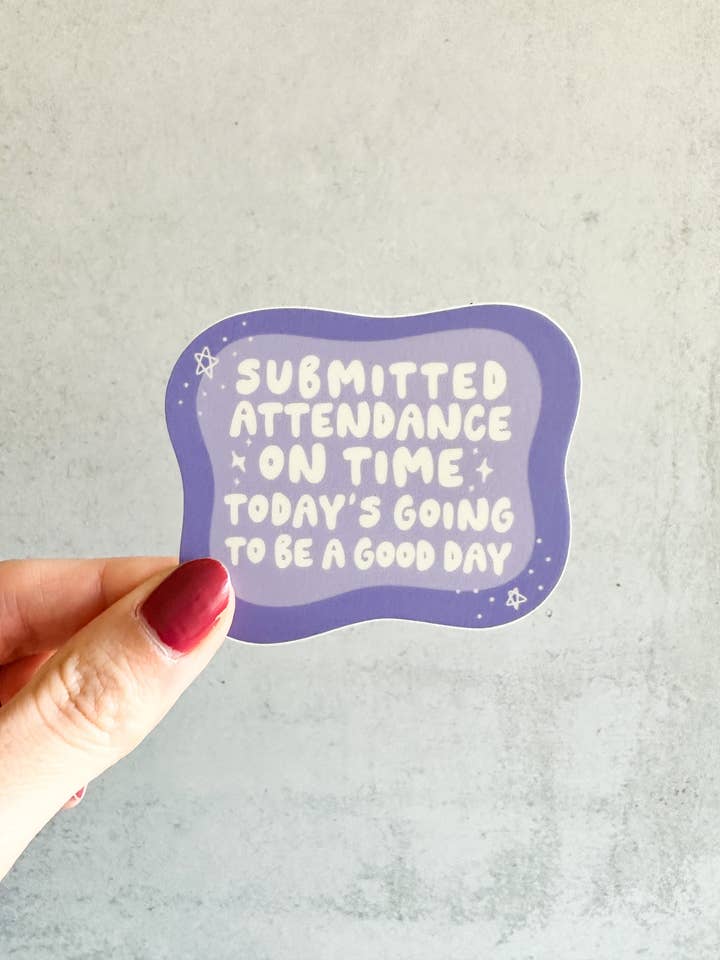 SUBMITTED
ATTENDANCE
ON TIME
TODAY'S GOING
TO BE A GOOD DAY